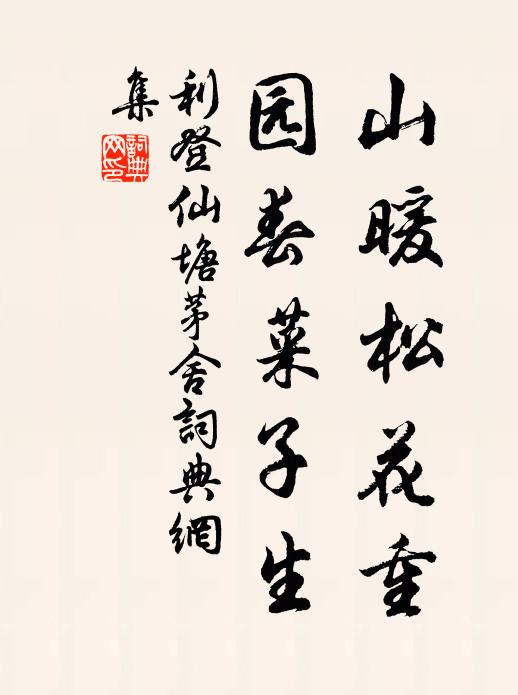 山暖松花重
园春菜子生
利登仙塘茅舍詞典網
集
詞典
网印